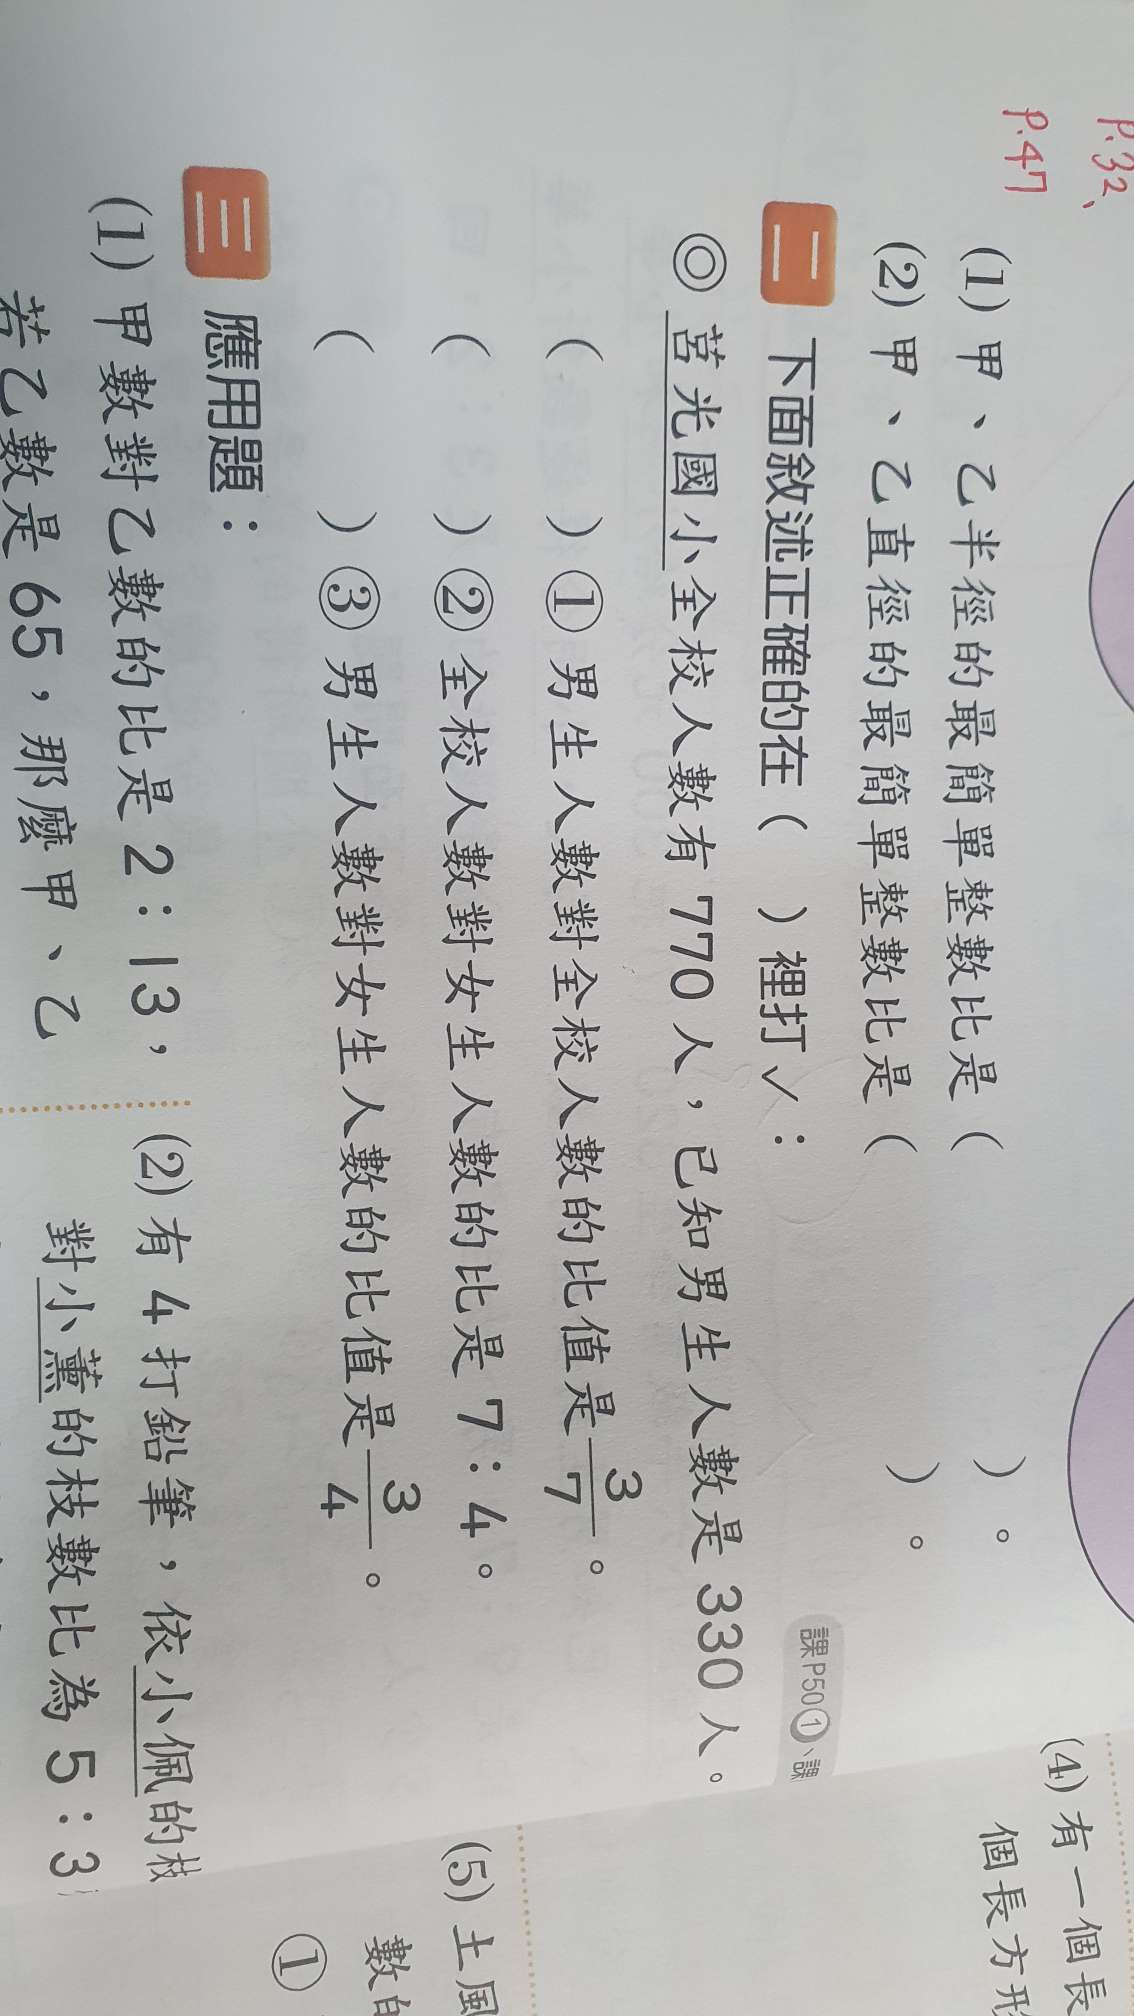 P.32、
P.47
(1) 甲、乙半徑的最簡單整數比是(　　)。
(2) 甲、乙直徑的最簡單整數比是(　　)。
二 下面敘述正確的在(　　)裡打✓：
課P50①、課
◎ 莒光國小全校人數有 770 人，已知男生人數是 330 人。
(　　)① 男生人數對全校人數的比值是 3/7。
(　　)② 全校人數對女生人數的比是 7：4。
(　　)③ 男生人數對女生人數的比值是 3/4。
三 應用題：
(1) 甲數對乙數的比是 2：13，
若乙數是 65，那麼甲、乙
(2) 有 4 打鉛筆，依小佩的枝
對小薰的枝數比為 5：3
(4) 有一個長
個長方形
(5) 土風
數的
①